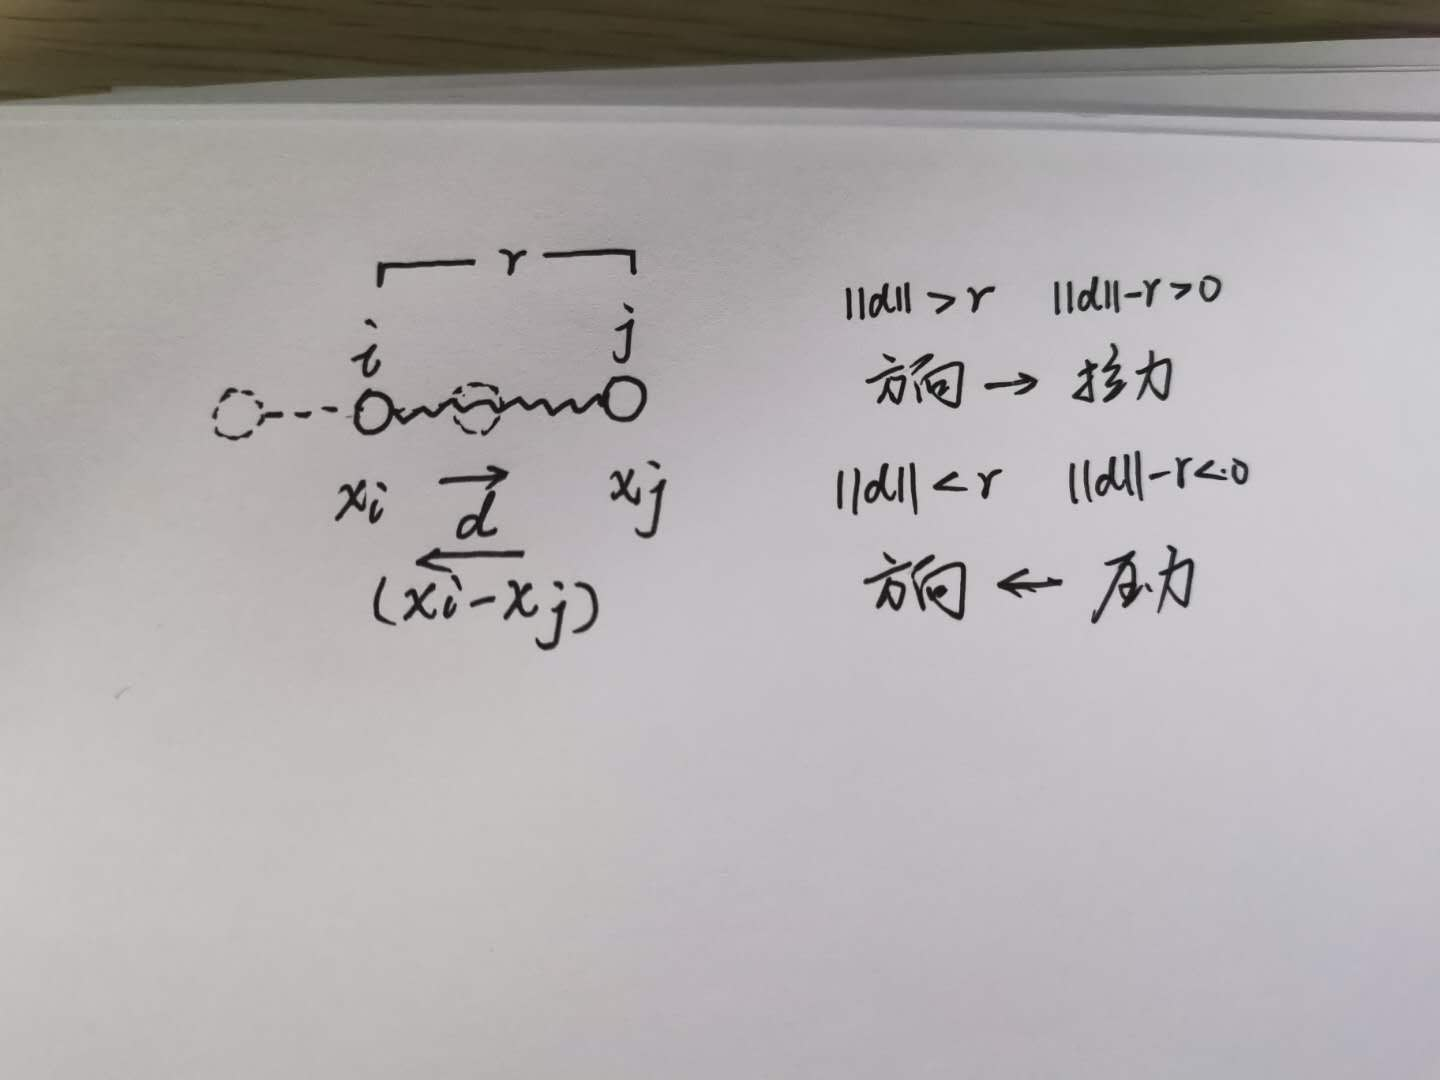 r
i
j
xi
d
xj
(xi-xj)
||d||>r ||d||-r>0
方向→拉力
||d||<r ||d||-r<0
方向←压力